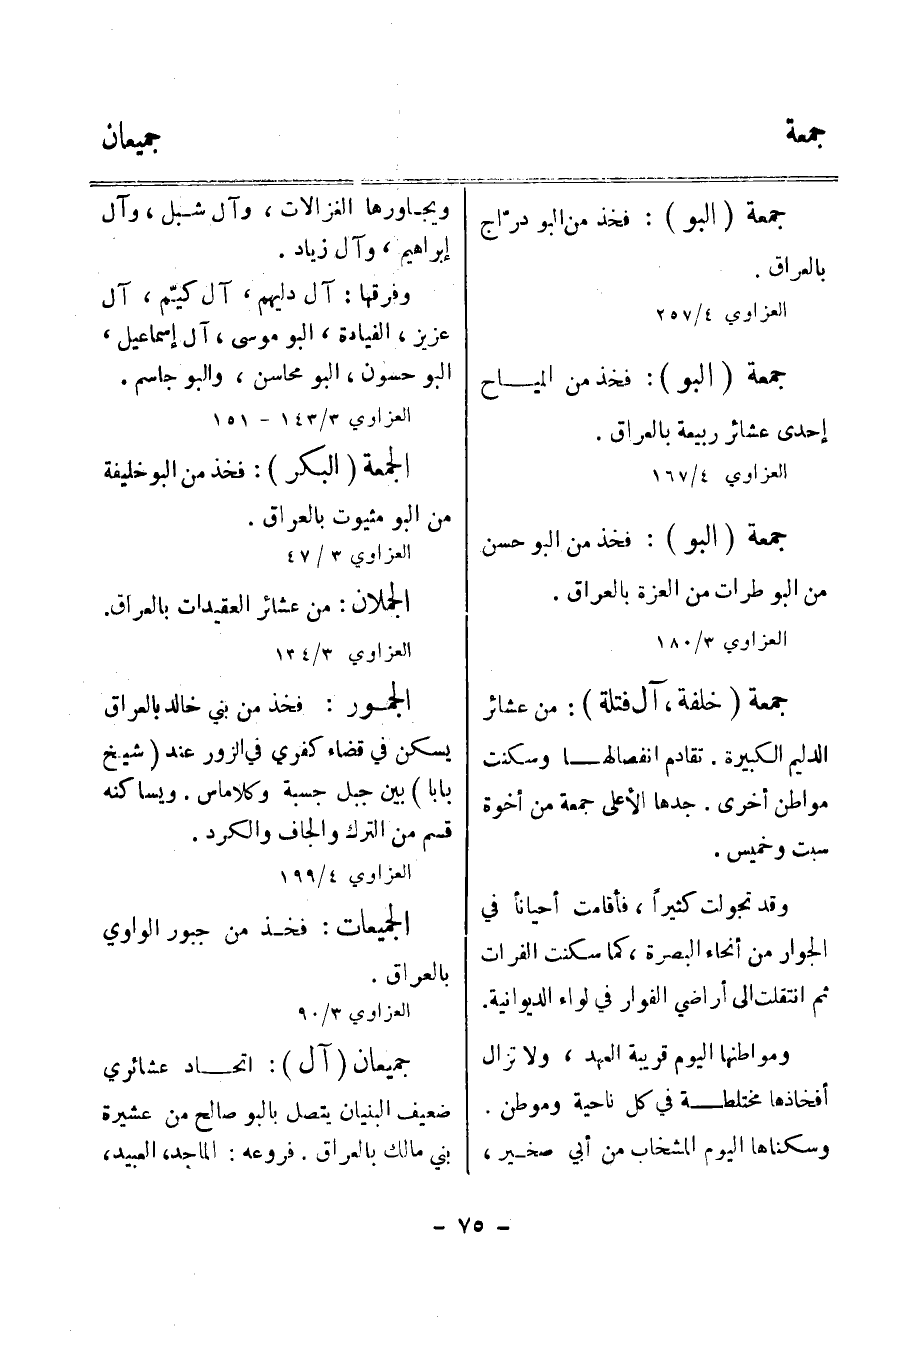 جمعة
جميعان
جمعة ( البو ) : فخذ من البو درّاج
بالعراق .
العزاوي ٢٥٧/٤
جمعة ( البو ) : فخذ من المياح
إحدى عشائر ربيعة بالعراق .
العزاوي ١٦٧/٤
جمعة ( البو ) : فخذ من البو حسن
من البو طرات من العزة بالعراق .
العزاوي ١٨٠/٣
جمعة ( خلفة ، آل فتلة ) : من عشائر
الدليم الكبيرة . تقادم انفصالها وسكنت
مواطن أخرى . جدها الأعلى جمعة من أخوة
سبت وخميس .
وقد تجولت كثيراً ، فأقامت أحياناً في
الجوار من أنحاء البصرة ، كما سكنت الفرات
ثم انتقلت الى أراضي الفوار في لواء الديوانية .
ومواطنها اليوم قريبة العهد ، ولا تزال
أفخاذها مختلطة في كل ناحية وموطن .
وسكناها اليوم المشخاب من أبي صخير ،
ويجاورها الغزالات ، وآل شبل ، وآل
إبراهيم ، وآل زياد .
وفرقها : آل دليهم ، آل كيتّم ، آل
عزيز ، الفيادة ، البو موسى ، آل إسماعيل ،
البو حسون ، البو محاسن ، والبو جاسم .
العزاوي ١٤٣/٣ - ١٥١
الجمعة ( البكر ) : فخذ من البو خليفة
من البو مثيوت بالعراق .
العزاوي ٤٧/٣
الجملان : من عشائر العقيدات بالعراق .
العزاوي ١٣٤/٣
الجمور : فخذ من بني خالد بالعراق
يسكن في قضاء كفري في الزور عند ( شيخ
بابا ) بين جبل جسبة وكلاماس . ويساكنه
قسم من الترك والجاف والكرد .
العزاوي ١٩٩/٤
الجميعات : فخذ من جبور الواوي
بالعراق .
العزاوي ٩٠/٣
جميعان ( آل ) : اتحاد عشائري
ضعيف البنيان يتصل بالبو صالح من عشيرة
بني مالك بالعراق . فروعه : الماجد ، العبيد ،
- ٧٥ -